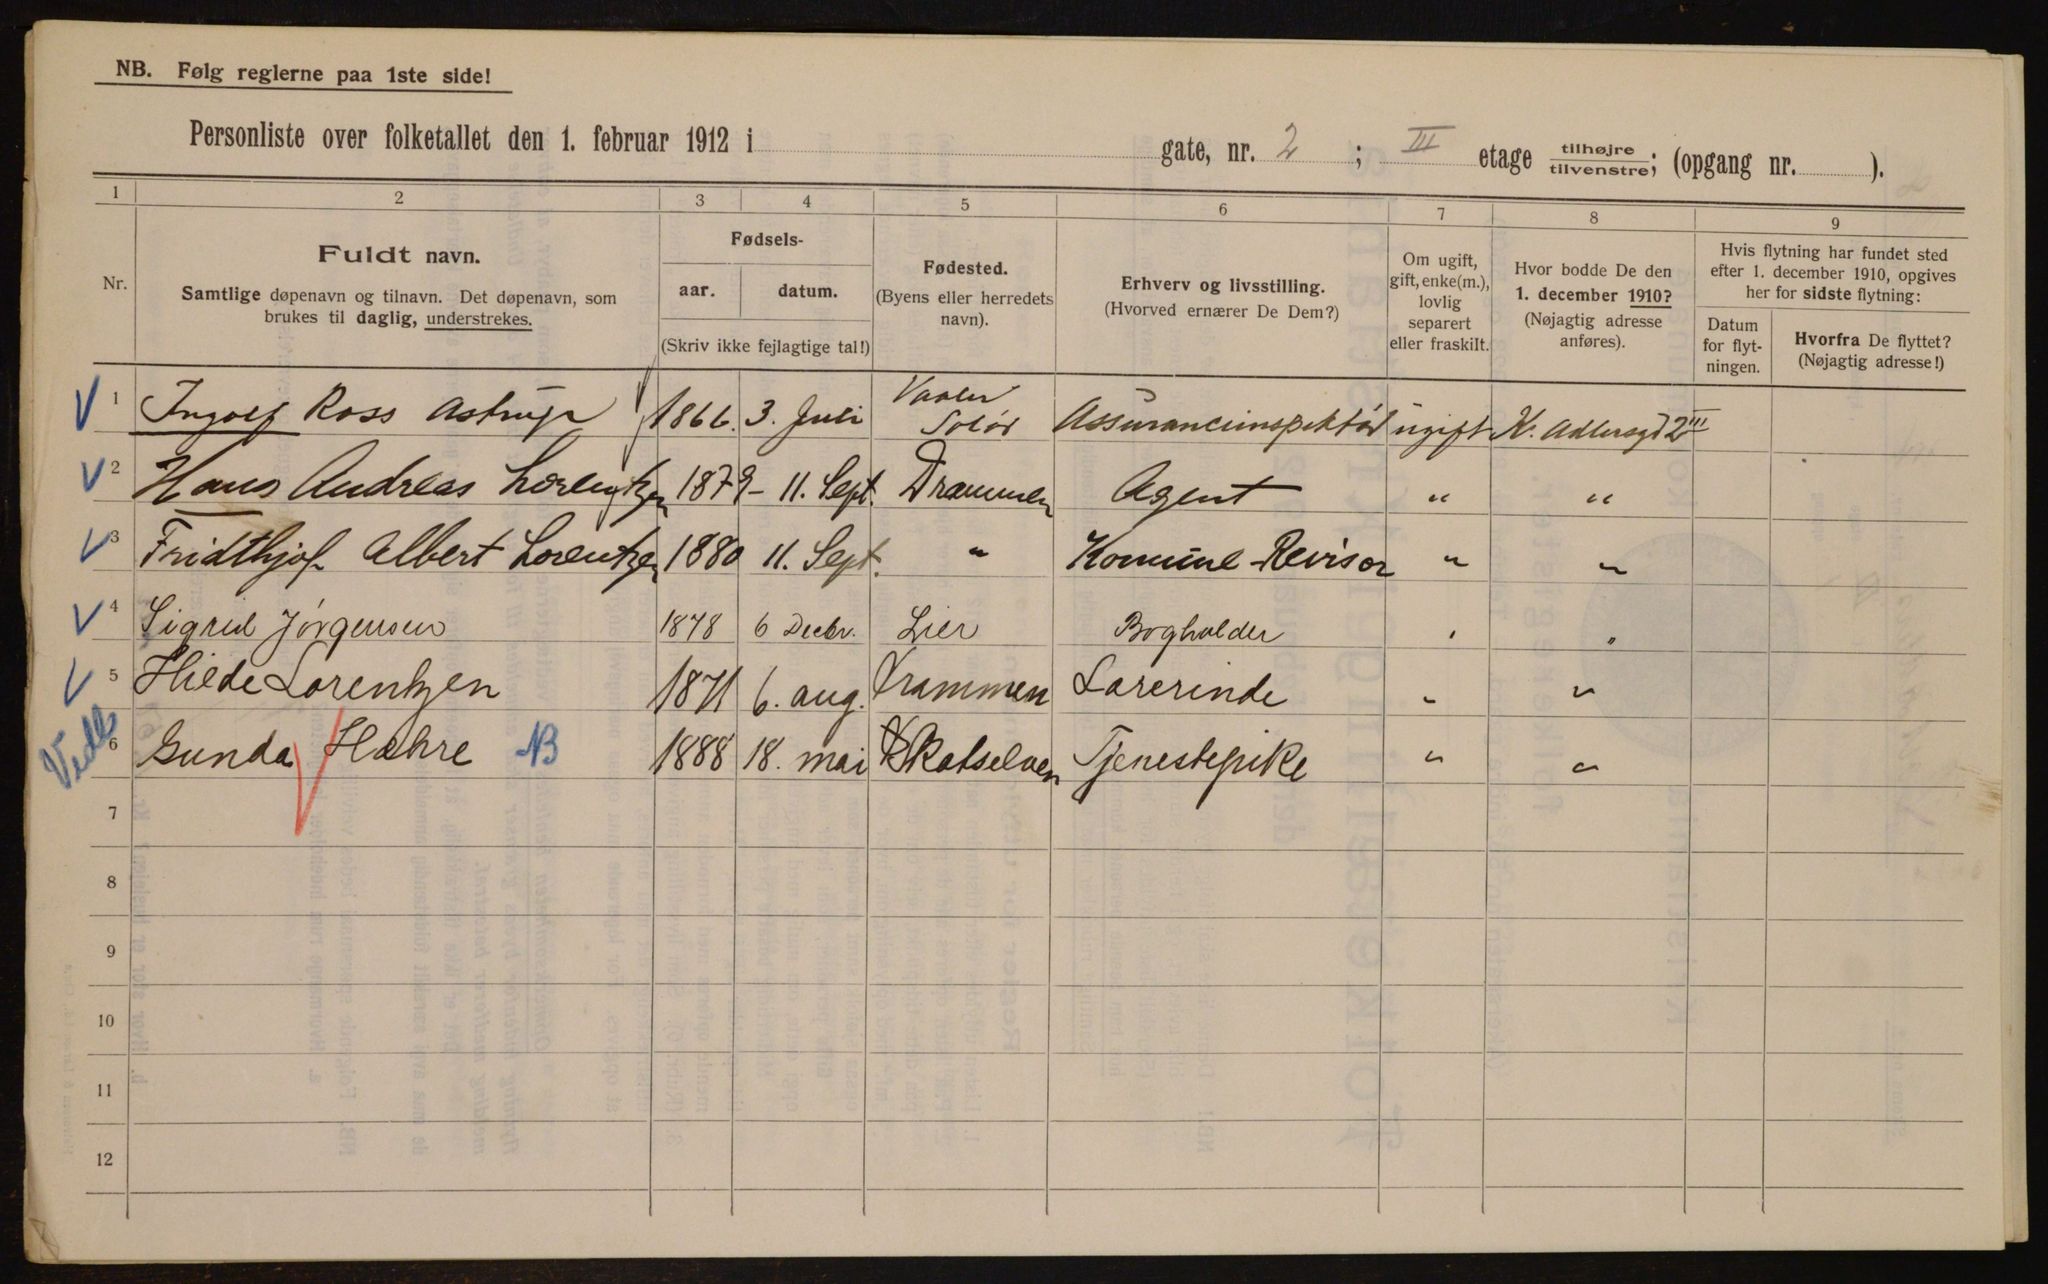 NB. Følg reglerne paa 1ste side!
Personliste over folketallet den 1. februar 1912 i gate, nr. 2 ; III etage tilhøjre/tilvenstre; (opgang nr. ).
1 2 3 4 5 6 7 8 9
Nr.
Fuldt navn.
Samtlige døpenavn og tilnavn. Det døpenavn, som
brukes til daglig, understrekes.
Fødsels-
aar. datum.
(Skriv ikke fejlagtige tal!)
Fødested.
(Byens eller herredets
navn).
Erhverv og livsstilling.
(Hvorved ernærer De Dem?)
Om ugift,
gift, enke(m.),
lovlig
separert
eller fraskilt.
Hvor bodde De den
1. december 1910?
(Nøjagtig adresse
anføres).
Hvis flytning har fundet sted
efter 1. december 1910, opgives
her for sidste flytning:
Datum
for flyt-
ningen.
Hvorfra De flyttet?
(Nøjagtig adresse!)
V 1 Ingolf Ross Astrup 1866. 3. Juli Vaaler Solør Assuranceinspektør ugift K. Adlersgd 2 III
V 2 Hans Andreas Lorentzen 1879 - 11. Sept. Drammen Agent " "
V 3 Fridthjof Albert Lorentzen 1880 11. Sept. " Komune-Revisor " "
V 4 Sigrid Jørgensen 1878 6 Decbr. Lier Bogholder " "
V 5 Hilde Lorentzen 1871 6. aug. Drammen Lærerinde " "
6 Gunda Hæhre NB 1888 18. mai Skotselven Tjenestepike " "
7
8
9
10
11
12